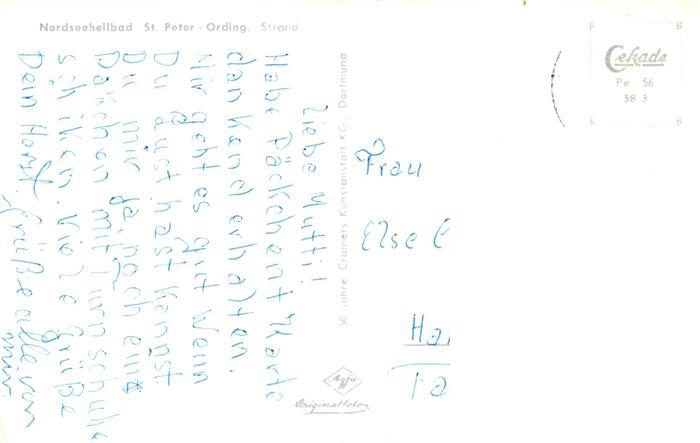 Nordseeheilbad St. Peter - Ording. Strand
Liebe Mutti!
Habe Päckchen + Karte
dankend erhalten.
Mir geht es gut. Wenn
Du Lust hast kannst
Du mir ja noch ein
Päckchen mit Turnschuhe
schiken. Viele Grüße
Dein Horst. Grüße alle von
mir
50 Jahre Cramers Kunstanstalt KG., Dortmund
Agfa
Originalfoto
B B
Cekade
Pe 56
58 3
K B
Frau
Else
Ha